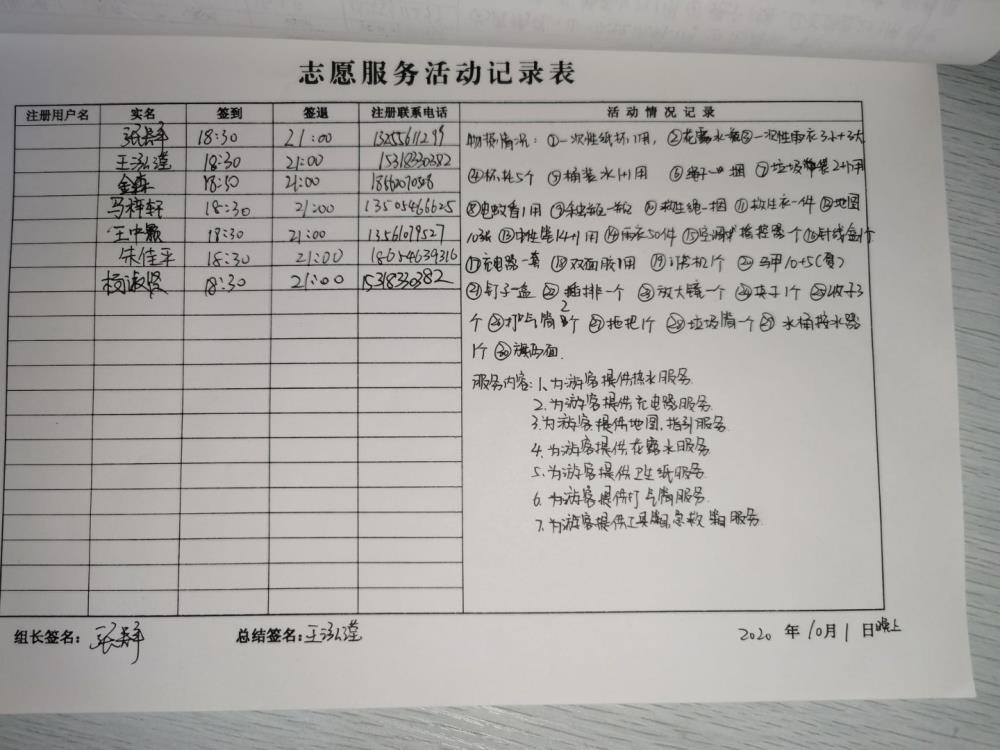 志愿服务活动记录表
注册用户名 实名 签到 签退 注册联系电话 活动情况记录
18:30 21:00 13255611299
王泓滢 18:30 21:00 15318330382
金森 18:30 21:00
马梓轩 18:30 21:00 13505466625
王中颢 18:30 21:00 1356109527
朱佳平 18:30 21:00 18654639316
杨淑贤 18:30 21:00 15318330382
物损情况：①一次性纸杯1用，②花露水一瓶③一次性雨衣3小+3大
④杯托5个 ⑤桶装水1+1用 ⑥绳子一捆 ⑦垃圾袋2+1用
⑧电蚊香1用 ⑨杀虫 ⑩救生绳一捆 ⑪救生衣一件 ⑫地图
10张 ⑬中性笔14+1用 ⑭雨衣50件 ⑮空调遥控器一个 ⑯针线盒1个
⑰充电器一套 ⑱双面胶1用 ⑲订书机1个 ⑳马甲10+5(夏)
㉑钉子一盒 ㉒插排一个 ㉓放大镜一个 ㉔夹子1个 ㉕3
个 ㉖打气筒2个 ㉗拖把1个 ㉘垃圾筒一个 ㉙水桶接水器
1个 ㉚旗
服务内容：1.为游客提供热水服务
2.为游客提供充电器服务
3.为游客提供地图,指引服务
4.为游客提供花露水服务
5.为游客提供卫生纸服务
6.为游客提供打气筒服务
7.为游客提供工具箱,急救箱服务
组长签名： 总结签名：王泓滢 2020年10月1日晚上